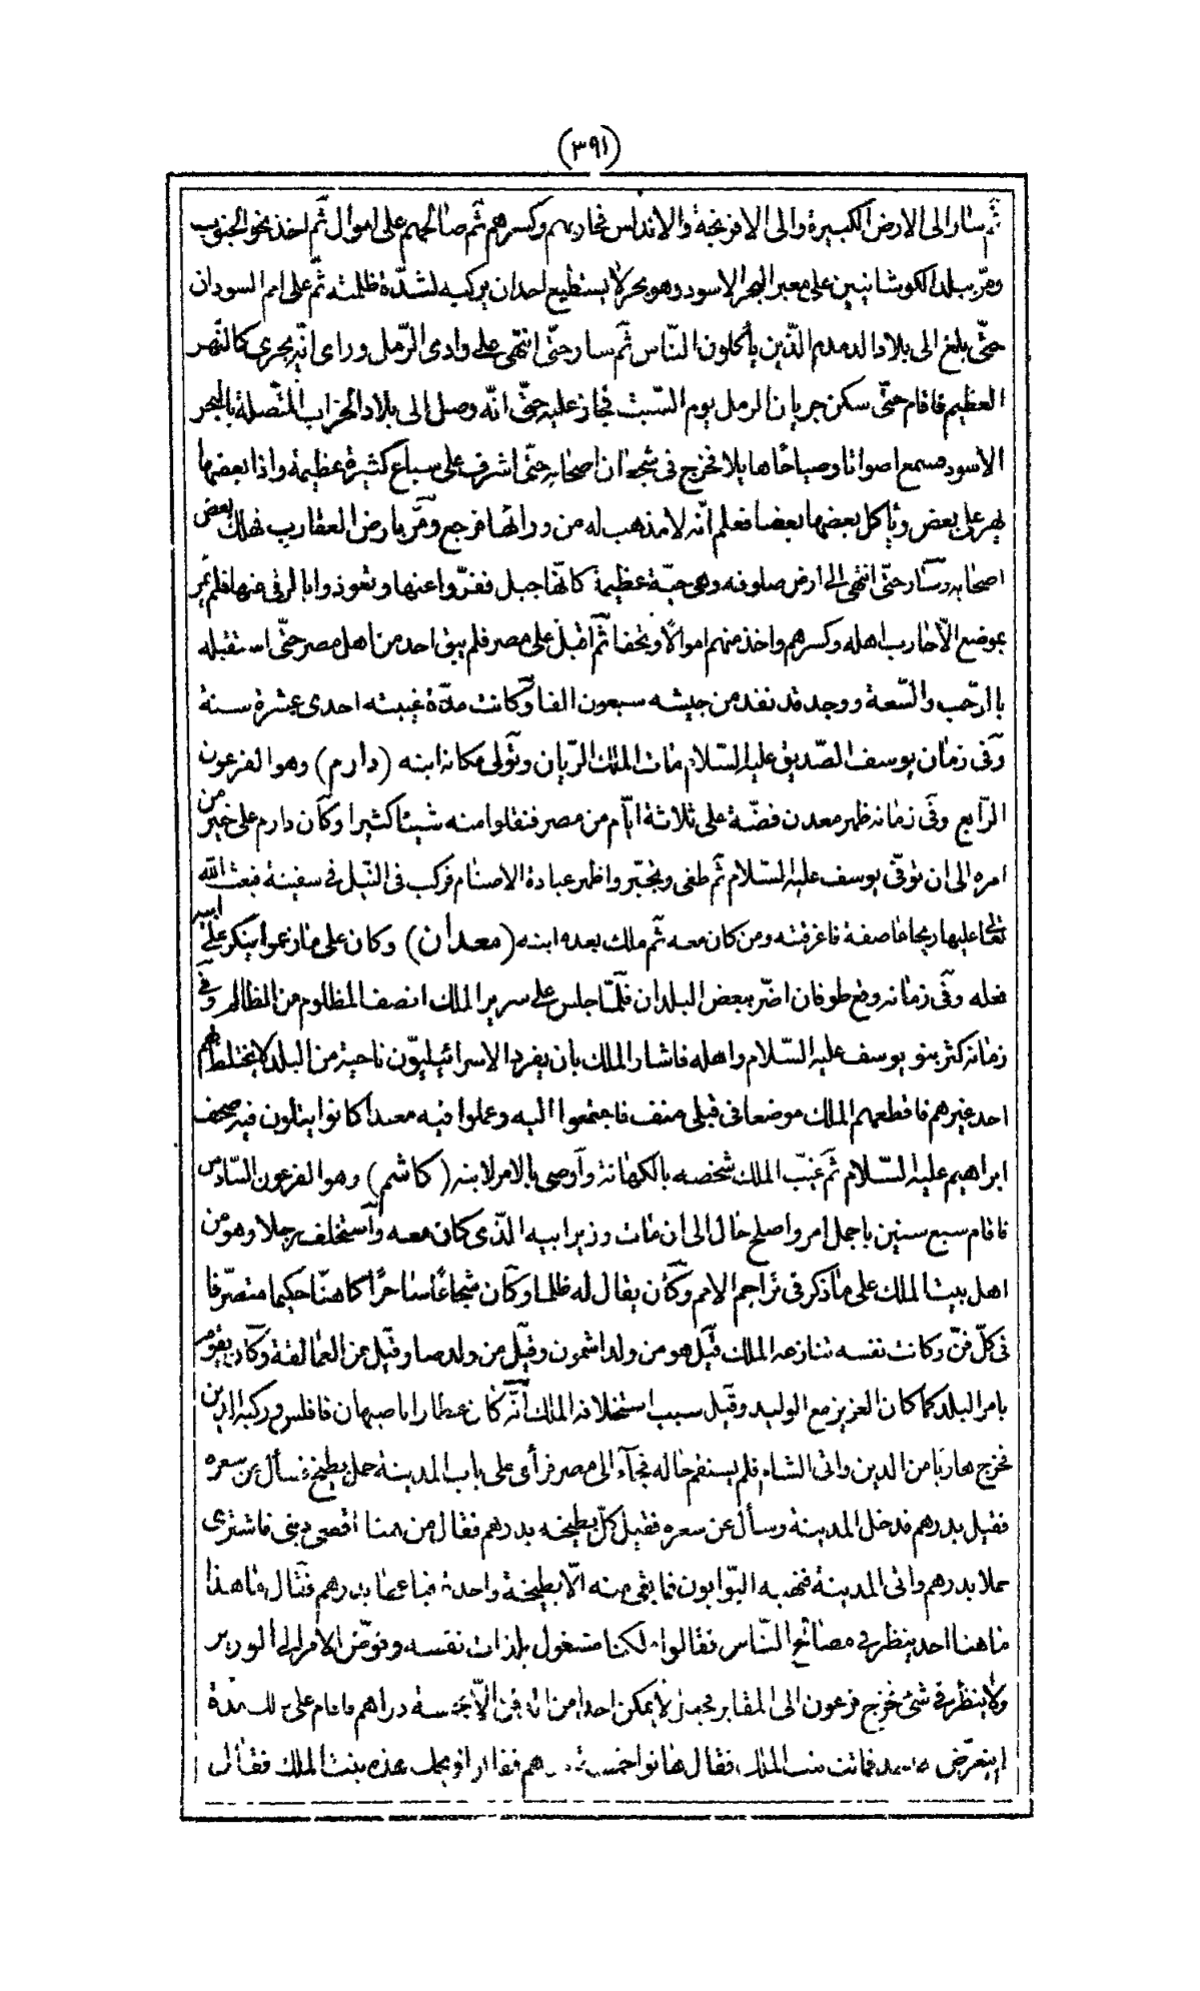 (٣٩١)
ثم سار الى الارض الكبيرة والى الافرنجة والاندلس فحاربهم وكسرهم ثم صالحهم على اموال ثم اخذ نحو الجنوب
ومر ببلد الكوشانيين على معبر البحر الاسود وهو بحر لا يستطيع احد ان يركبه لشدة ظلمته ثم على امم السودان
حتى بلغ الى بلاد الدمدم الذين يأكلون الناس ثم سار حتى انتهى على وادى الرمل وراى انه يجرى كالنهر
العظيم فاقام حتى سكن جريان الرمل يوم السبت فجاز عليه حتى انه وصل الى بلاد الخراب المتصلة بالبحر
الاسود فسمع اصواتا وصياحا هايلا فخرج فى شجعان اصحابه حتى اشرف على سباع كثيرة عظيمة واذا بعضها
يهر على بعض ويأكل بعضها بعضا فعلم انه لا مذهب له من ورائها فرجع ومر بارض العقارب فهلك بعض
اصحابه وسار حتى انتهى الى ارض صلوفه وهى حية عظيمة كانها جبل ففروا عنها وتعوذوا بالرقى عنها فلم يمر
بموضع الا حارب اهله وكسرهم واخذ منهم اموالا وتحفا ثم اقبل على مصر فلم يبق احد من اهل مصر حتى استقبله
بالرحب والسعة ووجد قد نفد من جيشه سبعون الفا وكانت مدة غيبته احدى عشرة سنة
وفى زمان يوسف الصديق عليه السلام مات الملك الريان وتولى مكانه ابنه (دارم) وهو الفرعون
الرابع وفى زمانه ظهر معدن فضة على ثلاثة ايام من مصر فنقلوا منه شيئا كثيرا وكان دارم على خير من
امره الى ان توفى يوسف عليه السلام ثم طغى وتجبر واظهر عبادة الاصنام فركب فى النيل فى سفينة فبعث الله
تعالى عليها ريحا عاصفة فاغرقته ومن كان معه ثم ملك بعده ابنه (معدان) وكان على ما زعموا ينكر على ابيه
فعله وفى زمانه وقع طوفان اضر ببعض البلدان فلما جلس على سرير الملك انصف المظلوم من الظالم وفى
زمانه كثر بنو يوسف عليه السلام واهله فاشار الملك بان يفرد الاسرائيليون ناحية من البلد لا يختلط بهم
احد غيرهم فاقطعهم الملك موضعا فى قبلى منف فاجتمعوا اليه وعملوا فيه معبدا كانوا يتلون فيه صحف
ابراهيم عليه السلام ثم غيب الملك شخصه بالكهانة واوصى بالامر لابنه (كاشم) وهو الفرعون السادس
فاقام سبع سنين باجمل امر واصلح حال الى ان مات وزير ابيه الذى كان معه واستخلف رجلا وهو من
اهل بيت الملك على ما ذكر فى تراجم الامم وكان يقال له ظلما وكان شجاعا ساحرا كاهنا حكيما متصرفا
فى كل فن وكانت نفسه تنازعه الملك قيل هو من ولد اشمون وقيل من ولد صا وقيل من العمالقة وكان يقوم
بامر البلد كما كان العزيز مع الوليد وقيل سبب استخلافه الملك انه كان عطارا باصبهان فافلس وركبه الدين
فخرج هاربا من الدين واتى الشام فلم يستقم حاله فجآء الى مصر فرأى على باب المدينة حمل بطيخ فسأل عن سعره
فقيل بدرهم فدخل المدينة وسأل عن سعره فقيل كل بطيخة بدرهم فقال من هنا اقضى دينى فاشترى
حملا بدرهم واتى المدينة فنهبه البوابون فما بقى منه الا بطيخة واحدة فباعها بدرهم فقال ما هذا
ما هنا احد ينظر فى مصالح الناس فقالوا ملكنا مشغول بلذات نفسه وفوض الامر الى الوزير
ولا ينظر فى شئ فخرج فرعون الى المقابر فجعل لا يمكن احدا من الدفن الا بخمسة دراهم فاقام على ذلك مدة
لم يتعرض فماتت بنت الملك فقال هاتوا خمسة هم فقالوا ويحك هذه بنت الملك فقال